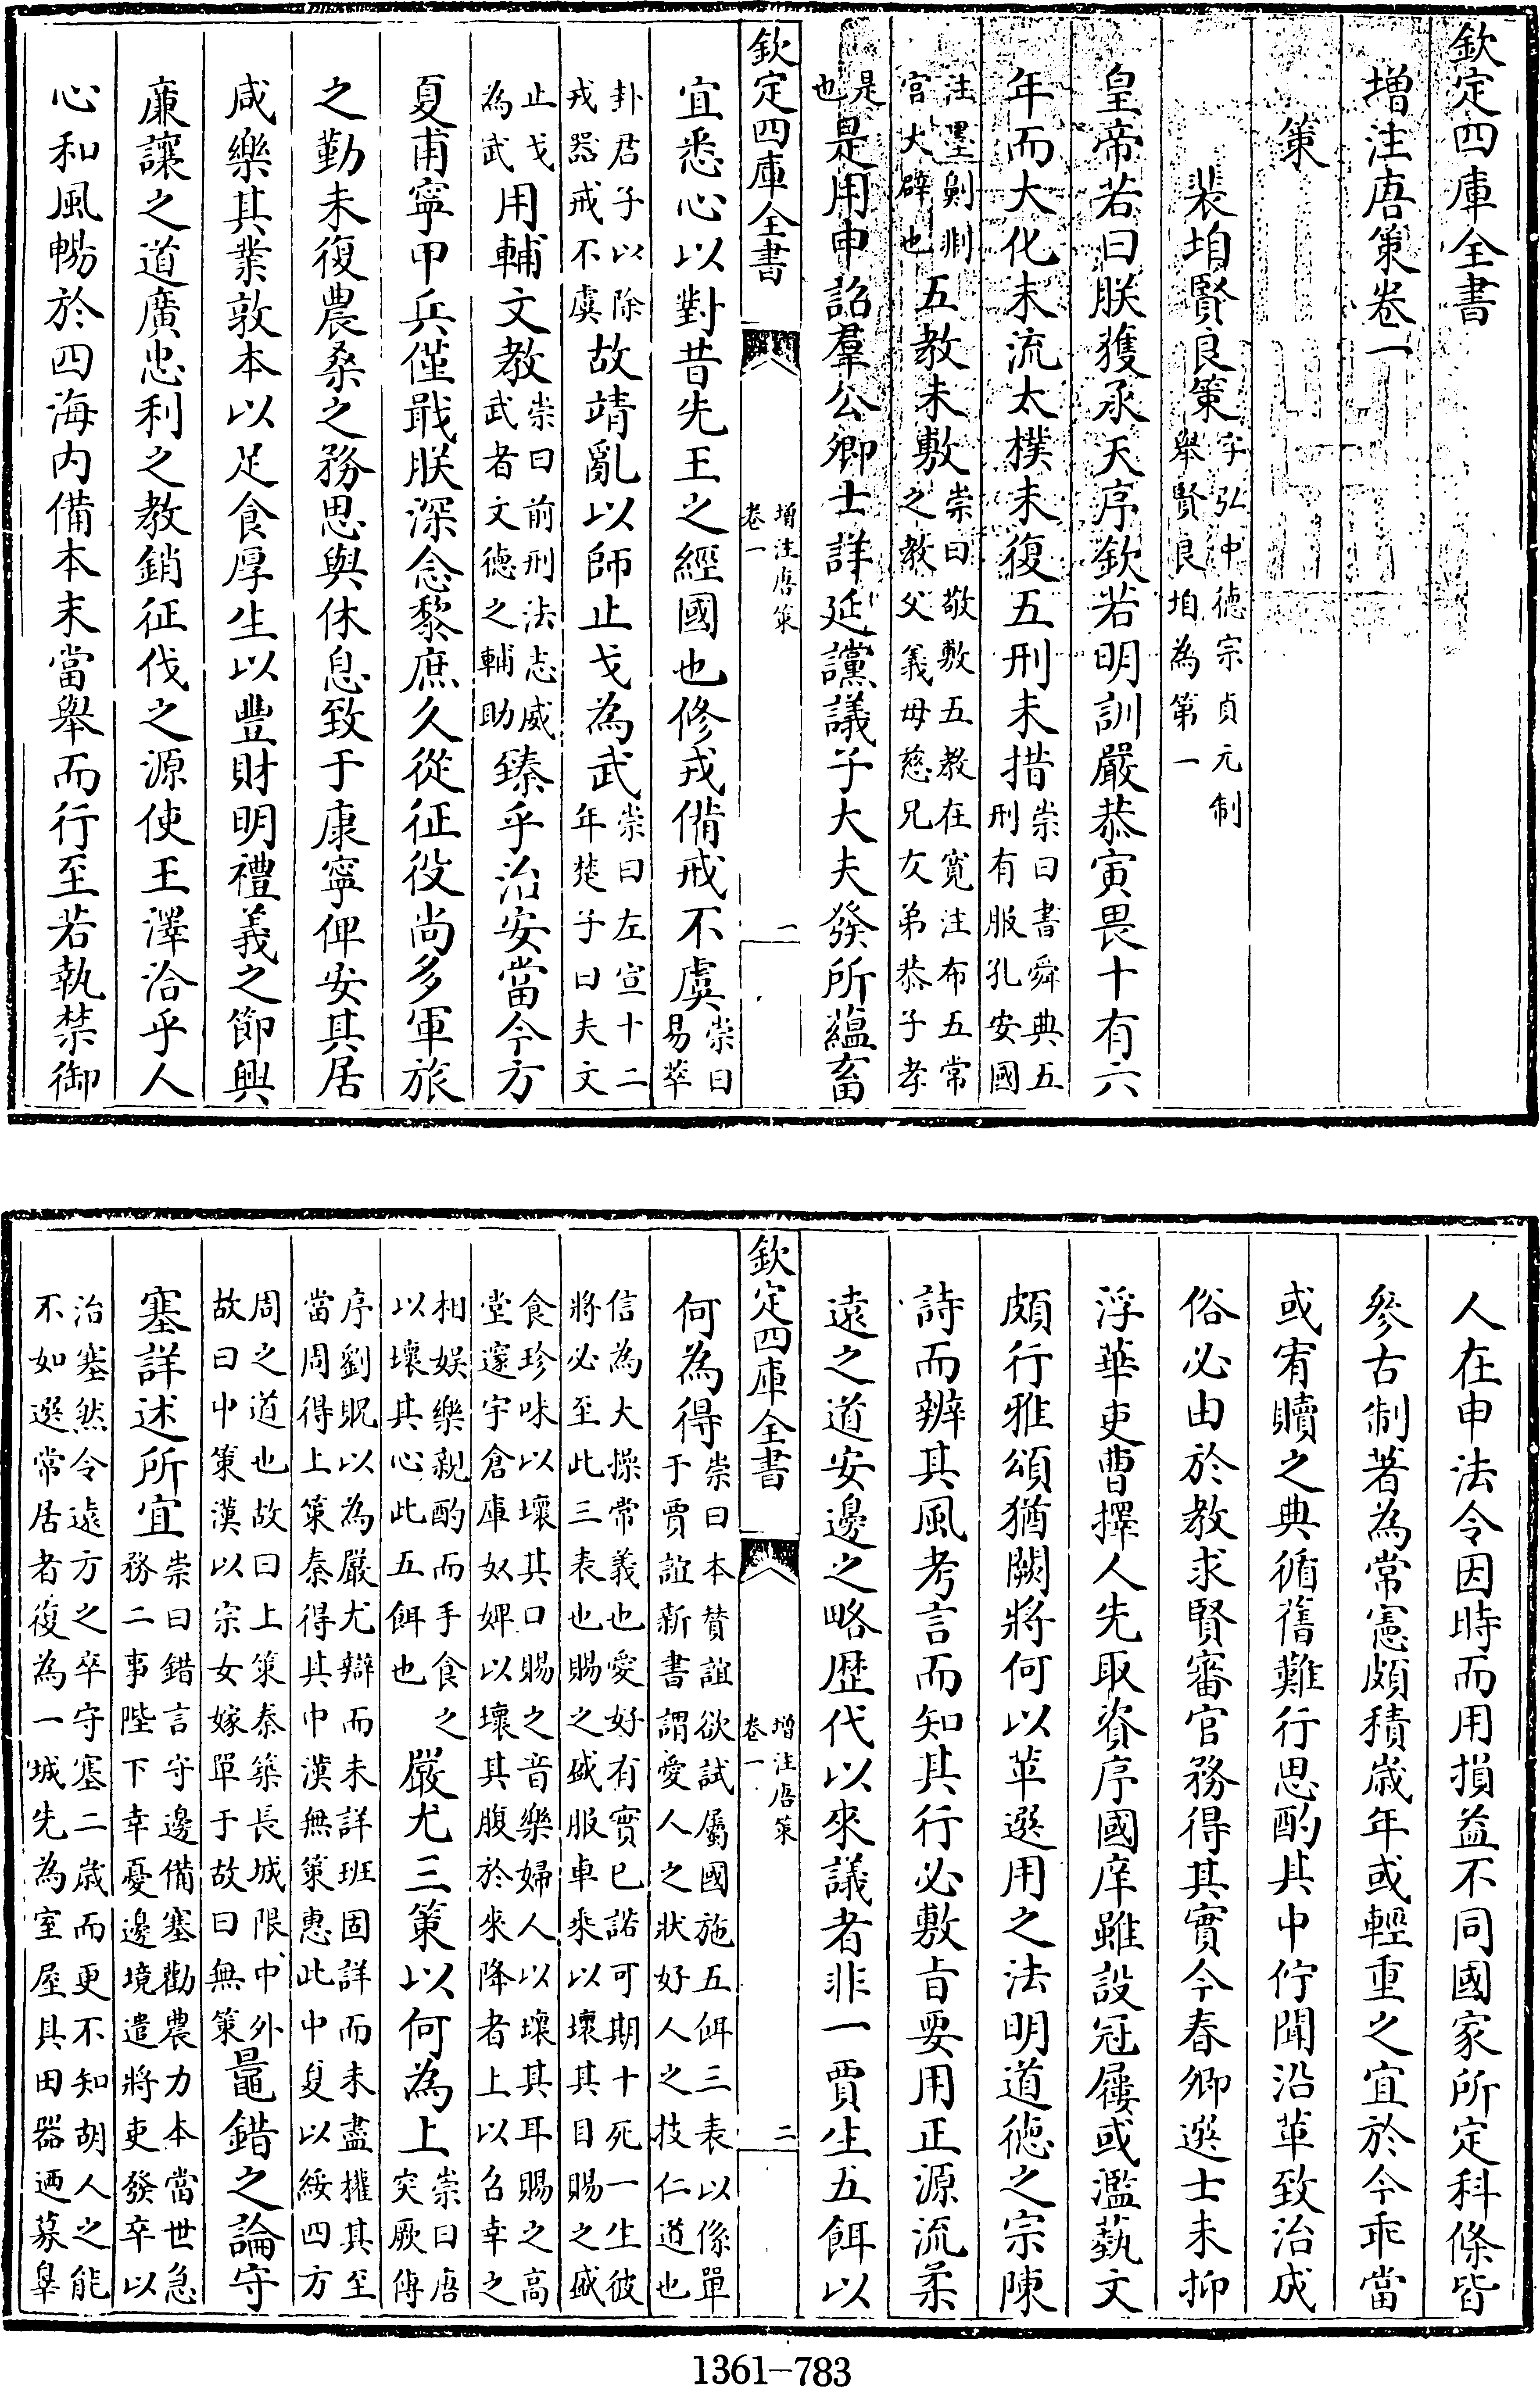 欽定四庫全書
增注唐策卷一
策
裴垍賢良策字弘中德宗貞元制舉賢良垍為第一
皇帝若曰朕獲承天序欽若明訓嚴恭寅畏十有六
年而大化未流太樸未復五刑未措崇曰書舜典五刑有服孔安國
注墨劓剕官大辟也五教未敷崇曰敬敷五教在寬注布五常之教父義母慈兄友弟恭子孝
是也是用申詔羣公卿士詳延讜議子大夫發所蘊畜
欽定四庫全書
增注唐策
卷一
一
宜悉心以對昔先王之經國也修戎備戒不虞崇曰易萃
卦君子以除戎器戒不虞故靖亂以師止戈為武崇曰左宣十二年楚子曰夫文
止戈為武用輔文教崇曰前刑法志威武者文德之輔助臻乎治安當今方
夏甫寧甲兵僅戢朕深念黎庶久從征役尚多軍旅
之勤未復農桑之務思與休息致于康寧俾安其居
咸樂其業敦本以足食厚生以豐財明禮義之節興
廉讓之道廣忠利之教銷征伐之源使王澤洽乎人
心和風暢於四海內備本末當舉而行至若執禁御
人在申法令因時而用損益不同國家所定科條皆
參古制著為常憲頗積歲年或輕重之宜於今乖當
或宥贖之典循舊難行思酌其中佇聞沿革致治成
俗必由於教求賢審官務得其實今春卿選士未抑
浮華吏曹擇人先取資序國庠雖設冠屨或濫藝文
頗行雅頌猶闕將何以革選用之法明道德之宗陳
詩而辨其風考言而知其行必敷旨要用正源流柔
遠之道安邊之略歴代以來議者非一賈生五餌以
欽定四庫全書
增注唐策
卷一
二
何為得崇曰本贊誼欲試屬國施五餌三表以係單于賈誼新書謂愛人之狀好人之技仁道也
信為大操常義也愛好有實已諾可期十死一生彼將必至此三表也賜之盛服車乘以壞其目賜之盛
食珍味以壞其口賜之音樂婦人以壞其耳賜之高堂邃宇倉庫奴婢以壞其腹於來降者上以召幸之
相娛樂親酌而手食之以壞其心此五餌也嚴尤三策以何為上崇曰唐突厥傳
序劉貺以為嚴尤辯而未詳班固詳而未盡權其至當周得上策秦得其中漢無策惠此中夏以綏四方
周之道也故曰上策秦築長城限中外故曰中策漢以宗女嫁單于故曰無策鼂錯之論守
塞詳述所宜崇曰錯言守邊備塞勸農力本當世急務二事陛下幸憂邊境遣將吏發卒以
治塞然令遠方之卒守塞二歲而更不知胡人之能不如選常居者復為一城先為室屋具田器迺募辠
1361-783